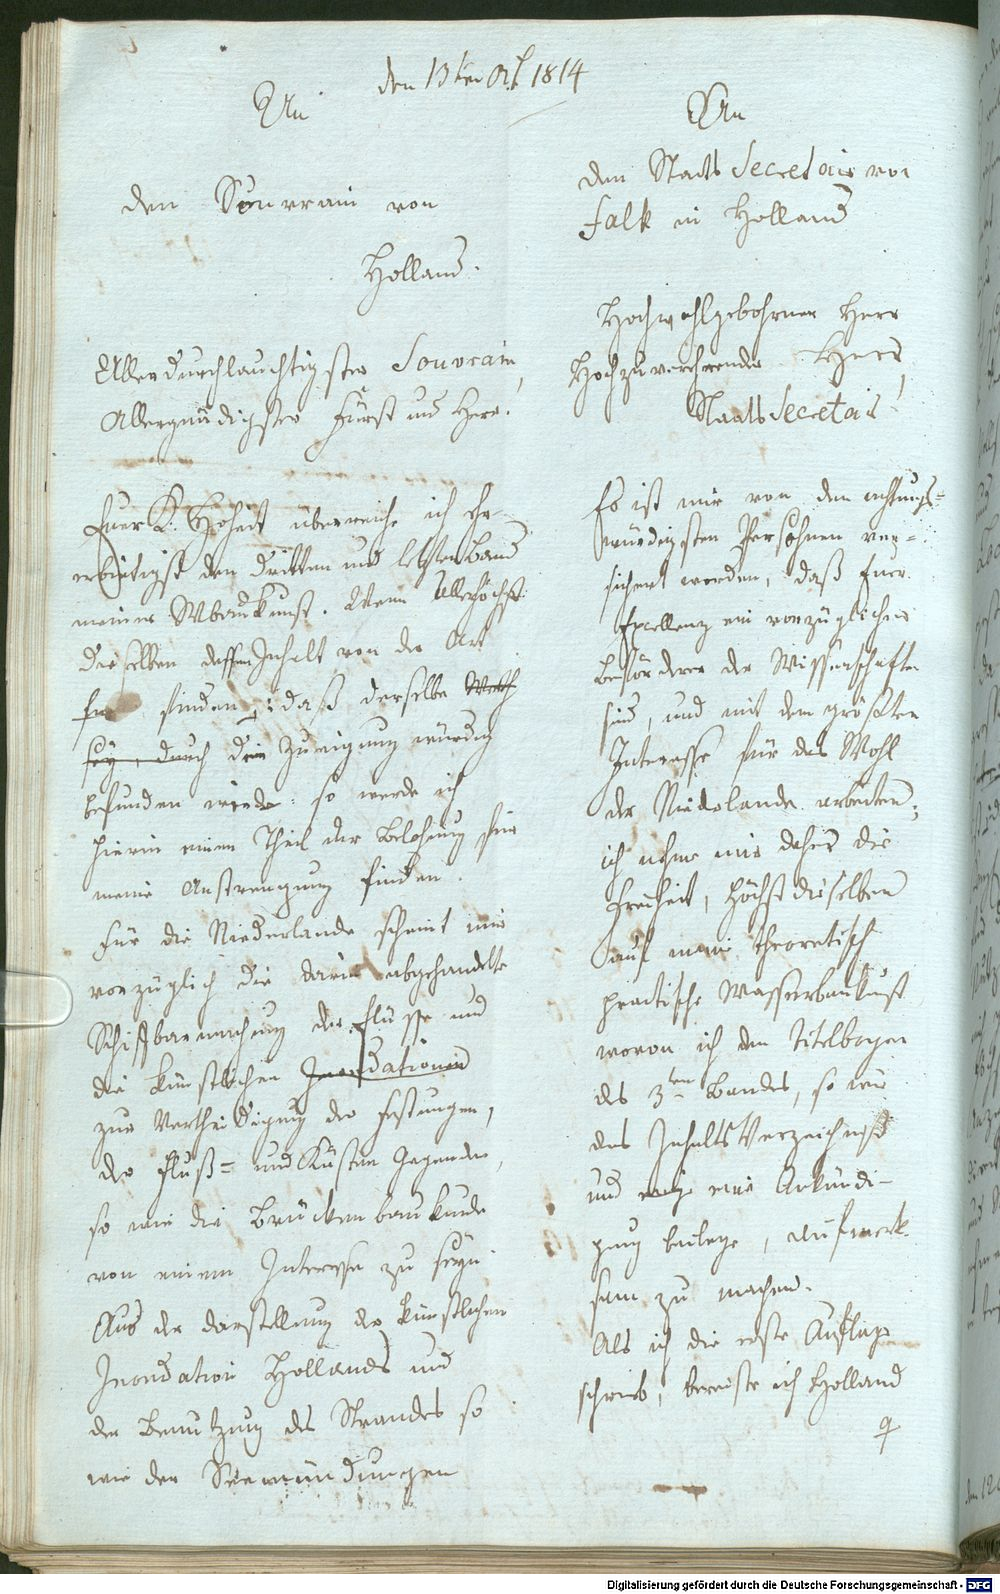 den 13ten Oct 1814
An
den Souvrain von
Holland.
Allerdurchlauchtigster Souvrain,
Allergnädigster Fürst und Herr.
Euer K. Hoheit überreiche ich Ehr
erbietigst den dritten und letzten Band
meiner Wbaukunst. Wenn Allerhöchst
dieselben dessen Inhalt von der Art
finden, daß derselbe Werth
sey, durch Zueignung würdig
befunden werde: so werde ich
hierin einen Theil der Belohnung für
meine Anstrengung finden.
Für die Niederlande scheint mir
vorzüglich die darin abgehandelte
Schiffbarmachung der Flüsse und
die künstlichen Inondationen
zur Vertheidigung der Festungen,
der Fluß= und Küsten Gegenden,
so wie die Brückenbaukunde
von einem Interesse zu seyn
Aus der Darstellung der künstlichen
Inondation Hollands und
der Benutzung des Strandes so
wie der Seemündungen
An
den Staats Secretair von
Falk in Holland
Hochwohlgebohrner Herr
Hochzuverehrender Herr
Staats Secretair!
Es ist mir von den achtungs=
würdigsten Persohnen ver=
sichert worden, daß Euer
Excellenz ein vorzüglicher
Beförderer der Wissenschaften
sind, und mit dem größten
Interesse für das Wohl
der Niederlande arbeiten;
ich nehme mir daher die
Freiheit, Höchstdieselben
auf meine theoretisch
practische Wasserbaukunst
wovon ich den Titelbogen
des 3ten Bandes, so wie
das Inhalts Verzeichniß
und eine Ankündi-
gung beilege, aufmerk-
sam zu machen.
Als ich die erste Auflage
schrieb, bereiste ich Holland
Digitalisierung gefördert durch die Deutsche Forschungsgemeinschaft - DFG